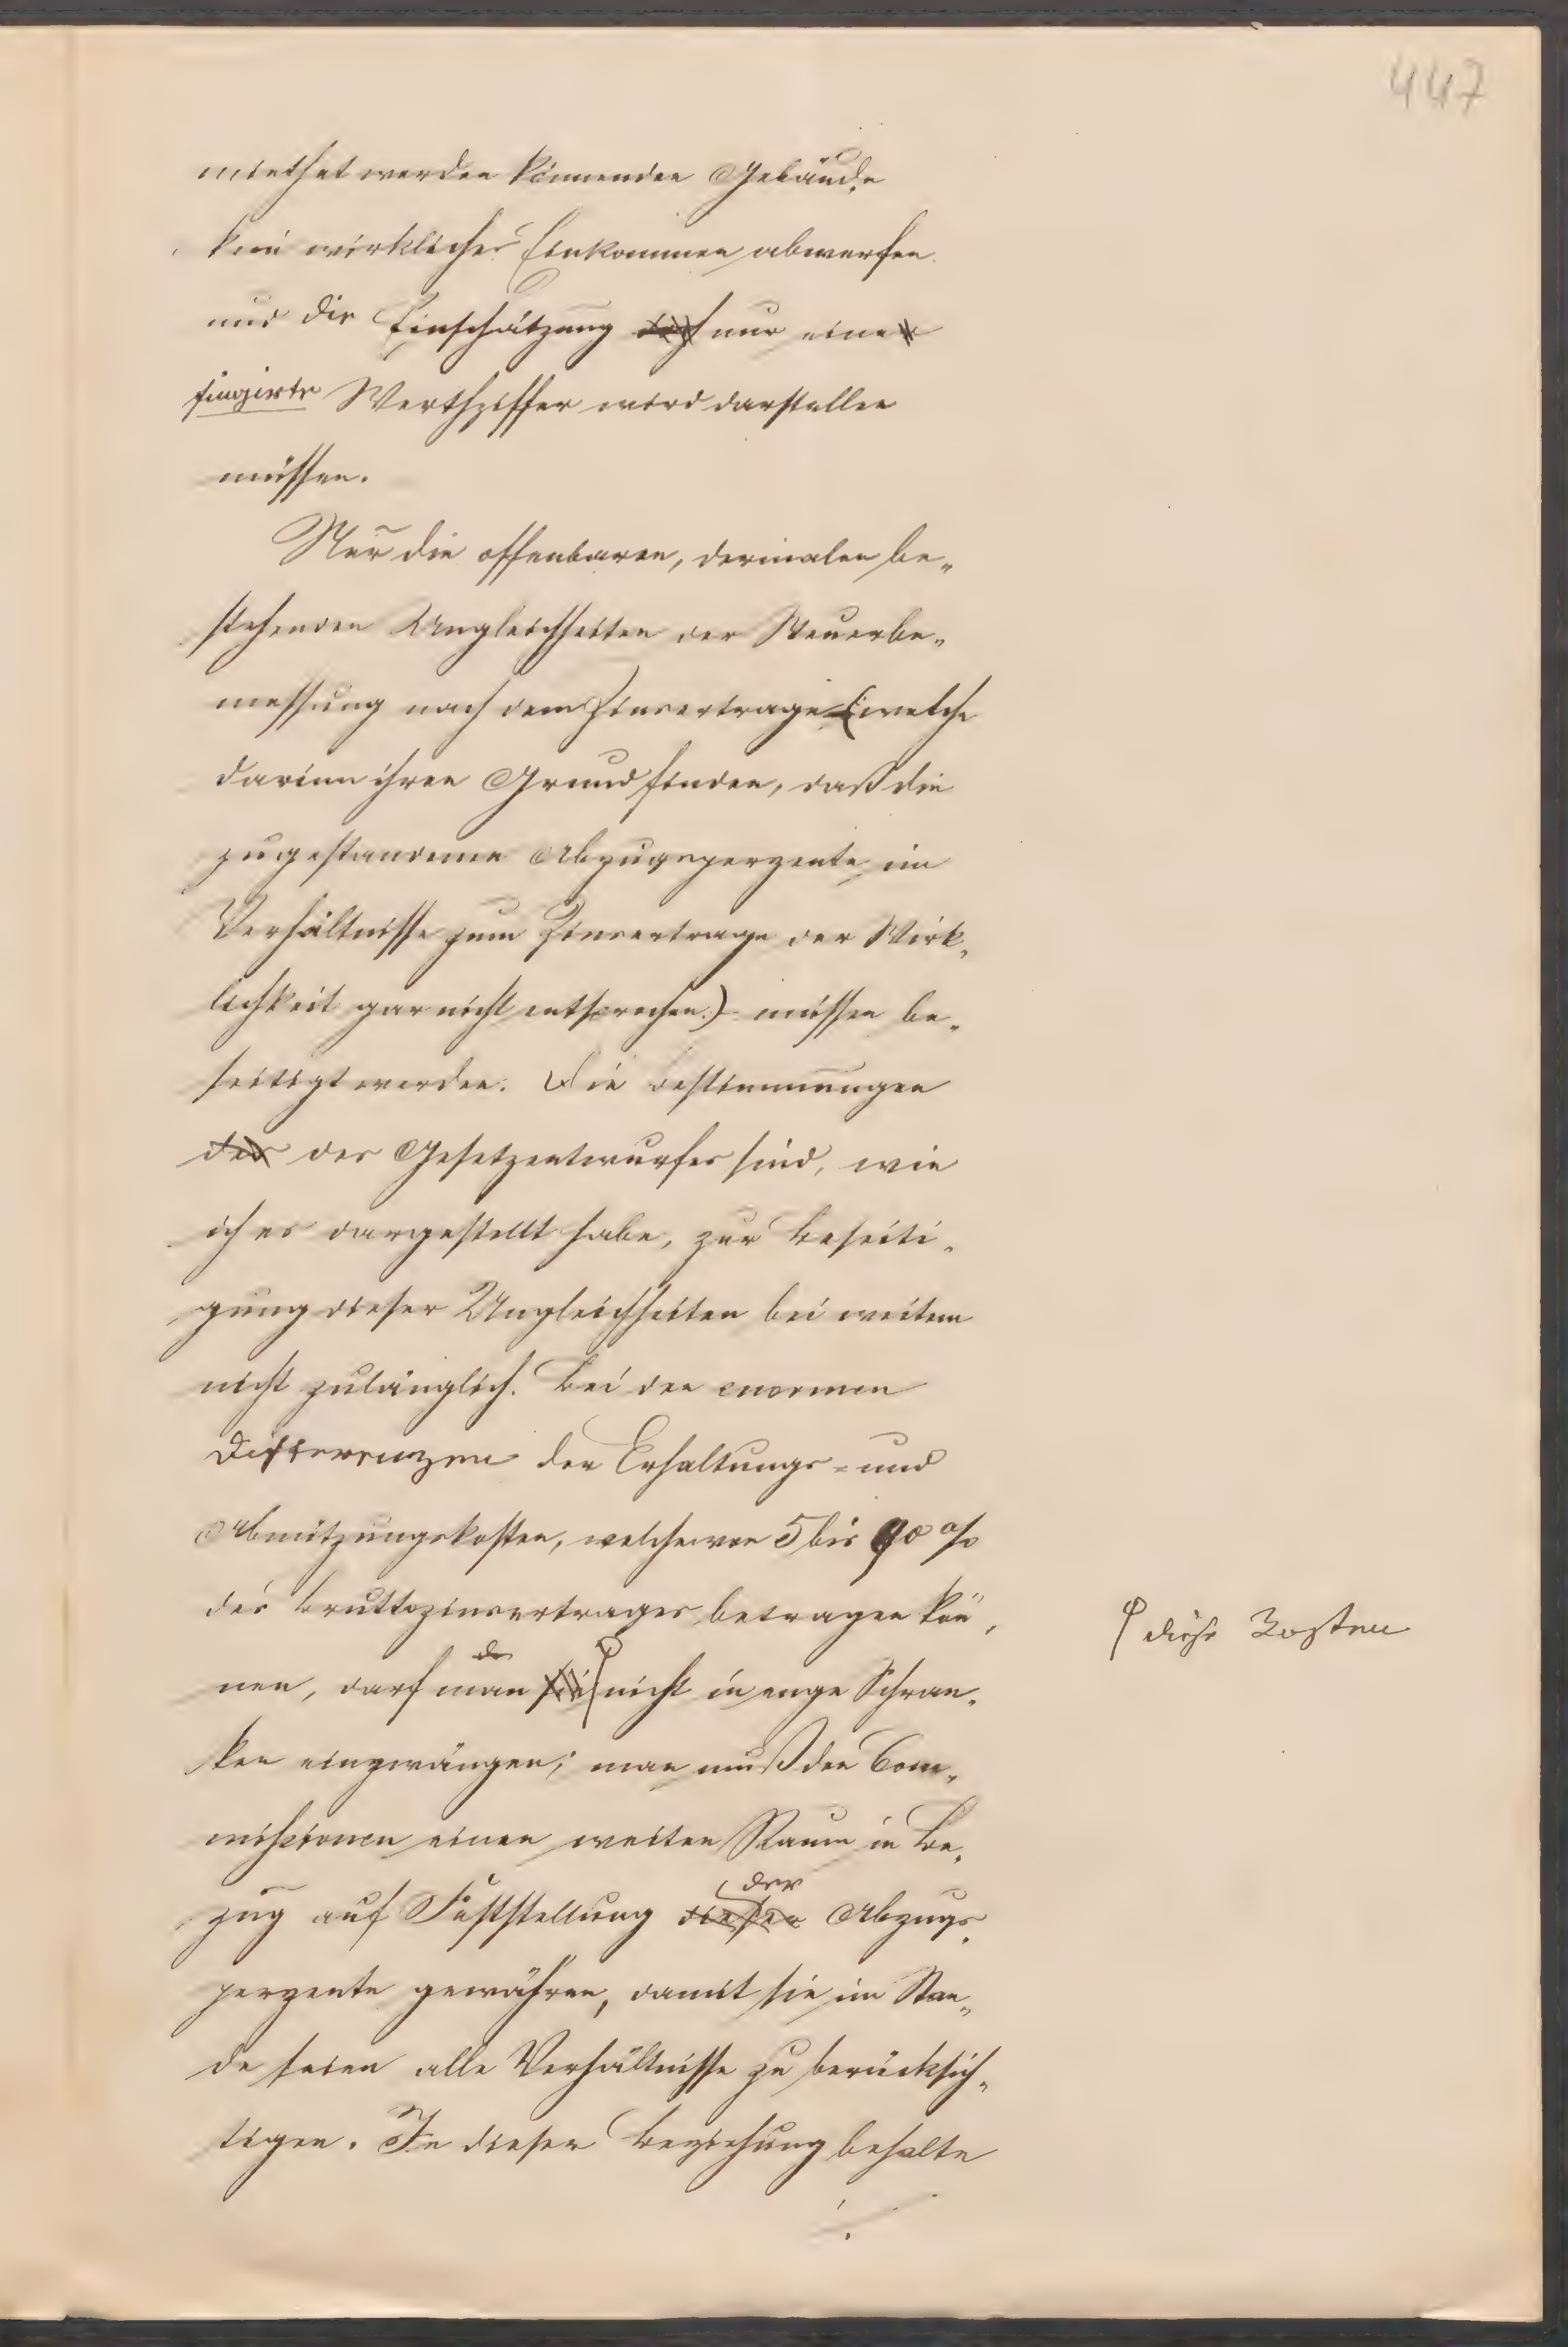 447
miethet werden könnenden Gebäude
kein wirkliches Einkommen abwerfen
und die Einschätzung doch nur einer
fingirte Werthziffer wird darstellen
müssen.
Nur die offenbaren, dermalen be„
stehenden Ungleichheiten der Steuerbe„
messung nach dem Zinsertrage (welche
darinn ihren Grund finden, daß die
zugestandenen Abzugsperzente im
Verhältnisse zum Zinsertrage der Wirk„
lichkeit gar nicht entsprechen.) müssen be„
seitigt werden. Die Bestimmungen
des des Gesetzentwurfes sind, wie
ich es dargestellt habe, zur Beseiti„
gung dieser Ungleichheiten bei weitem
nicht zulänglich. Bei den enormen
Differenzen der Erhaltungs- und
Abnützungskosten, welche von 5 bis 90 %
des Bruttozinsertrages betragen kön„
nen, darf man sie nicht in enge Schran„
diese Kosten
ken einzwängen; man muß den Com„
missionen einen weiten Raum in Be„
der
zug auf Feststellung dieser Abzugs„
perzente gewähren, damit sie im Stan„
de seien alle Verhältnisse zu berücksich„
tigen. In dieser Beziehung behalte
./.